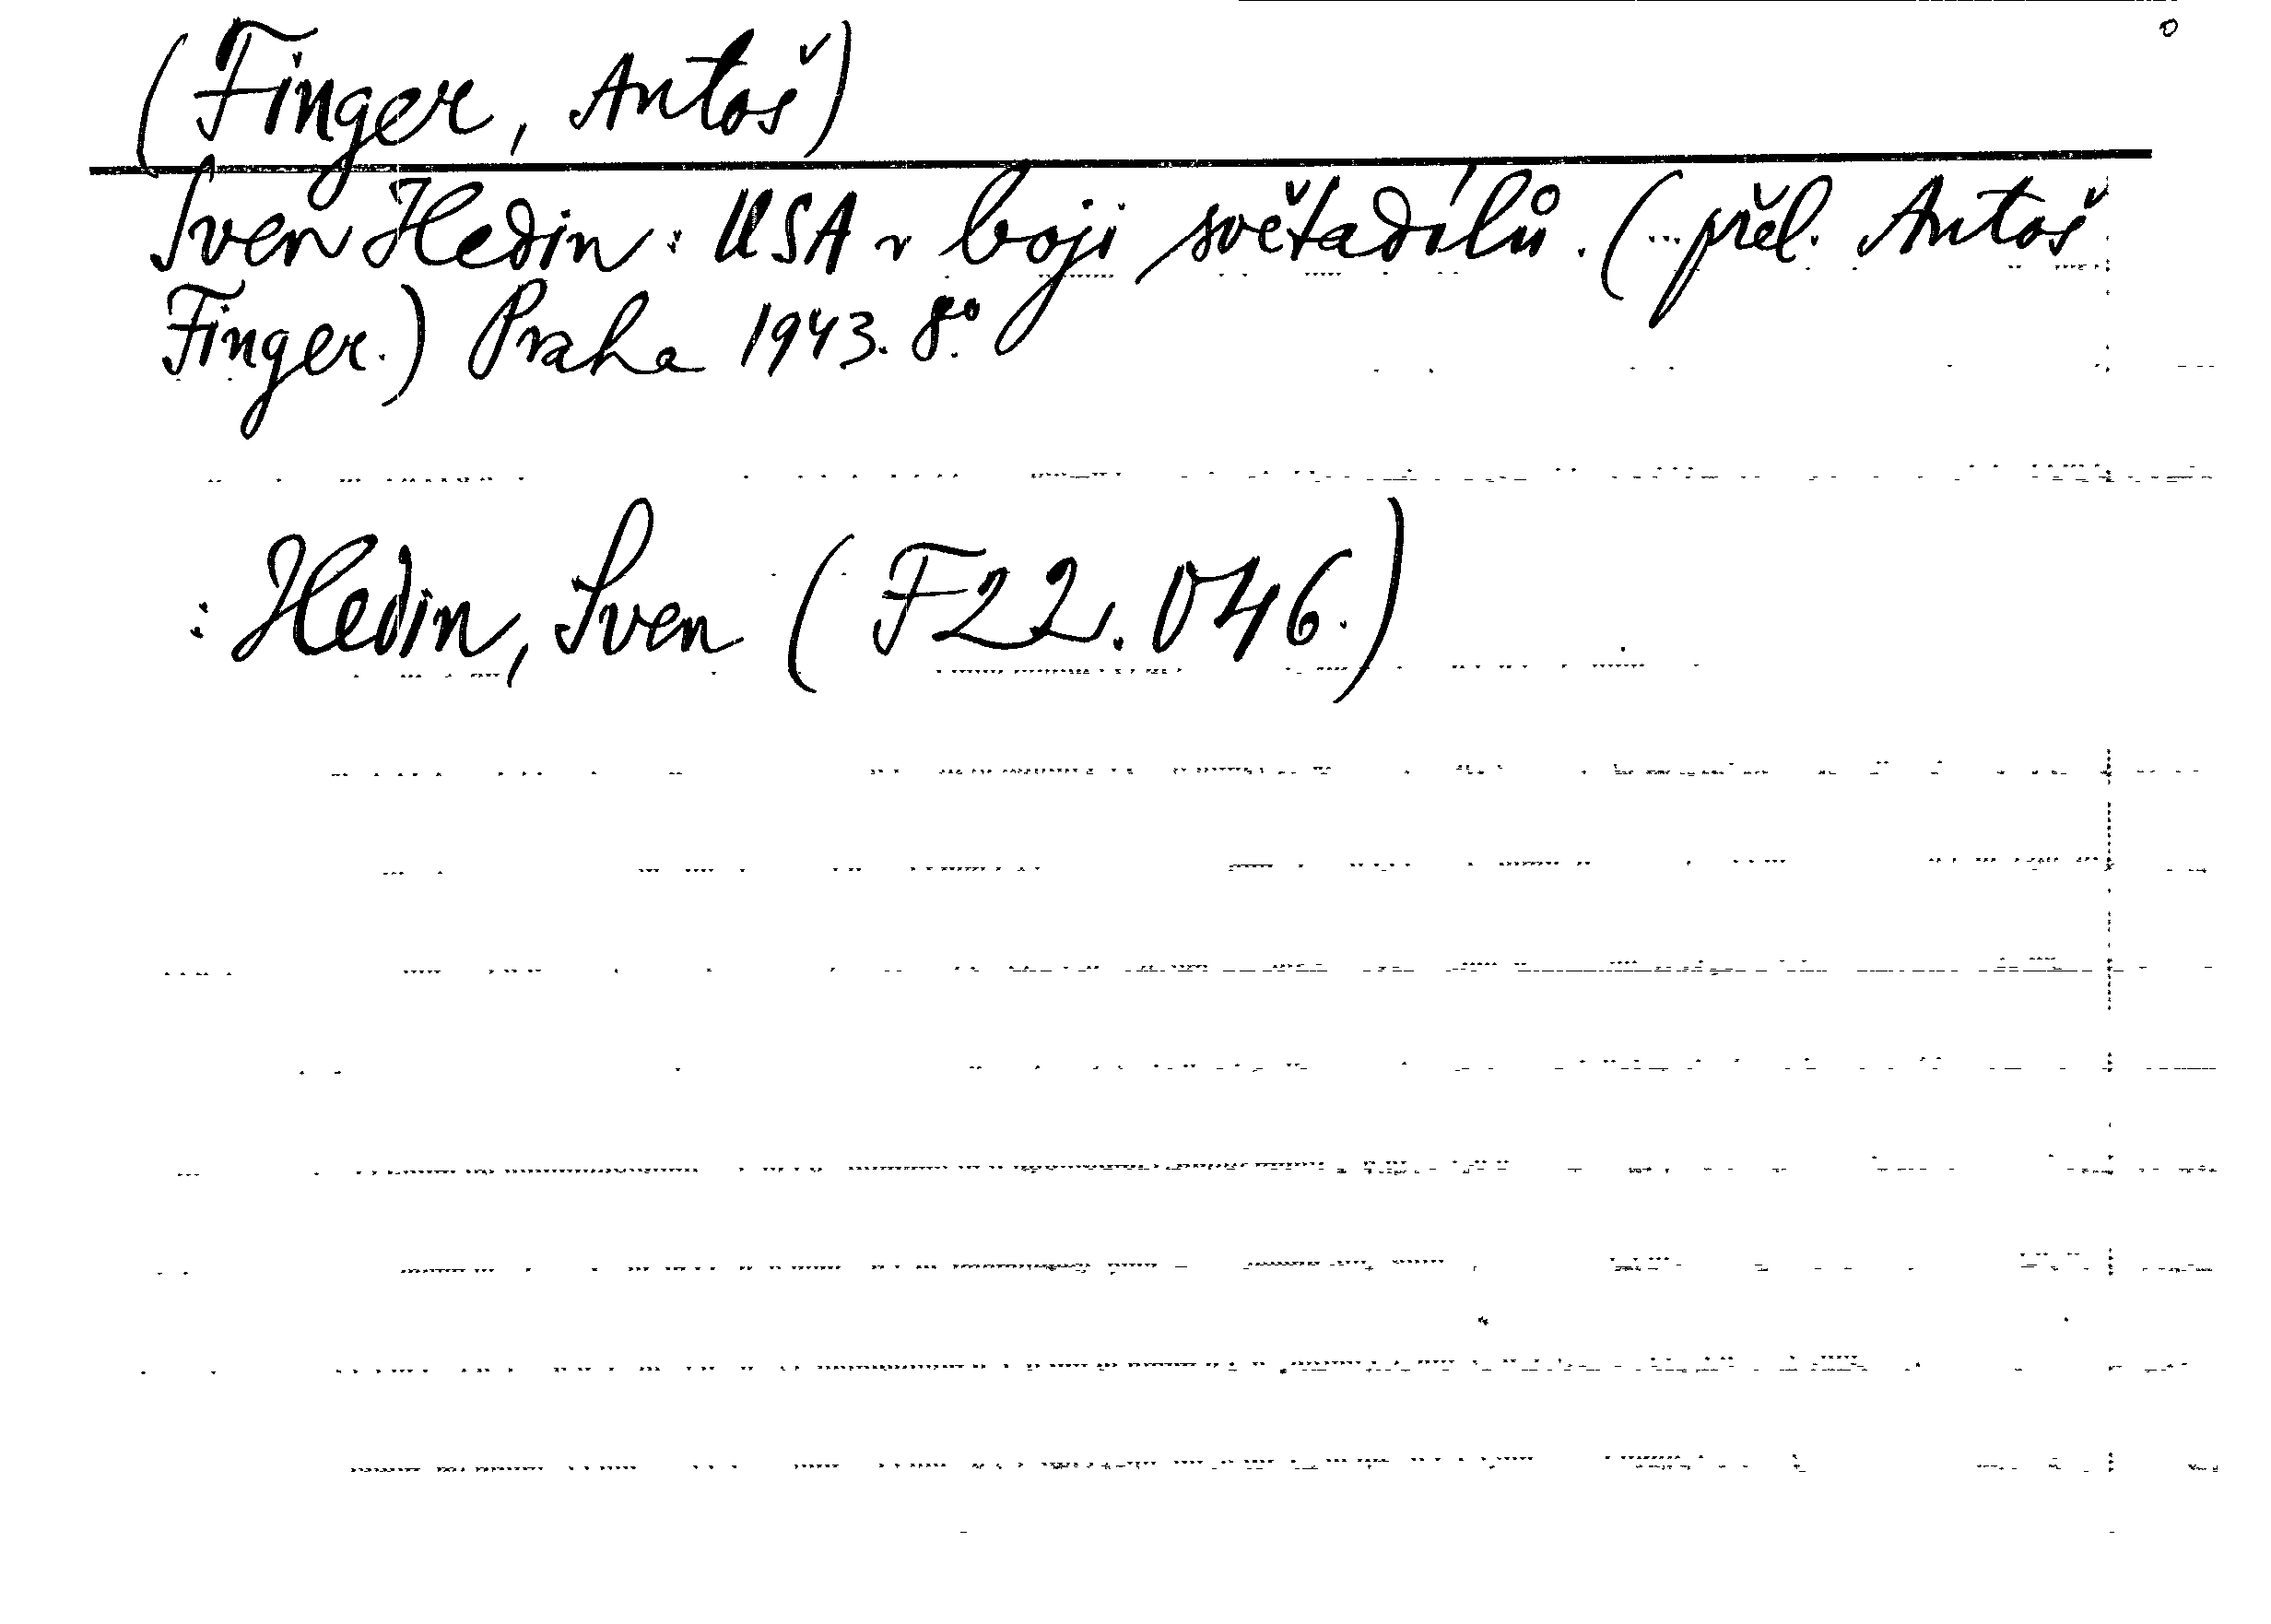 (Finger, Antoš)
Sven Hedin: USA v boji světadílů. (...přel. Antoš
Finger.) Praha 1943. 8°.
: Hedin, Sven (F22.046.)